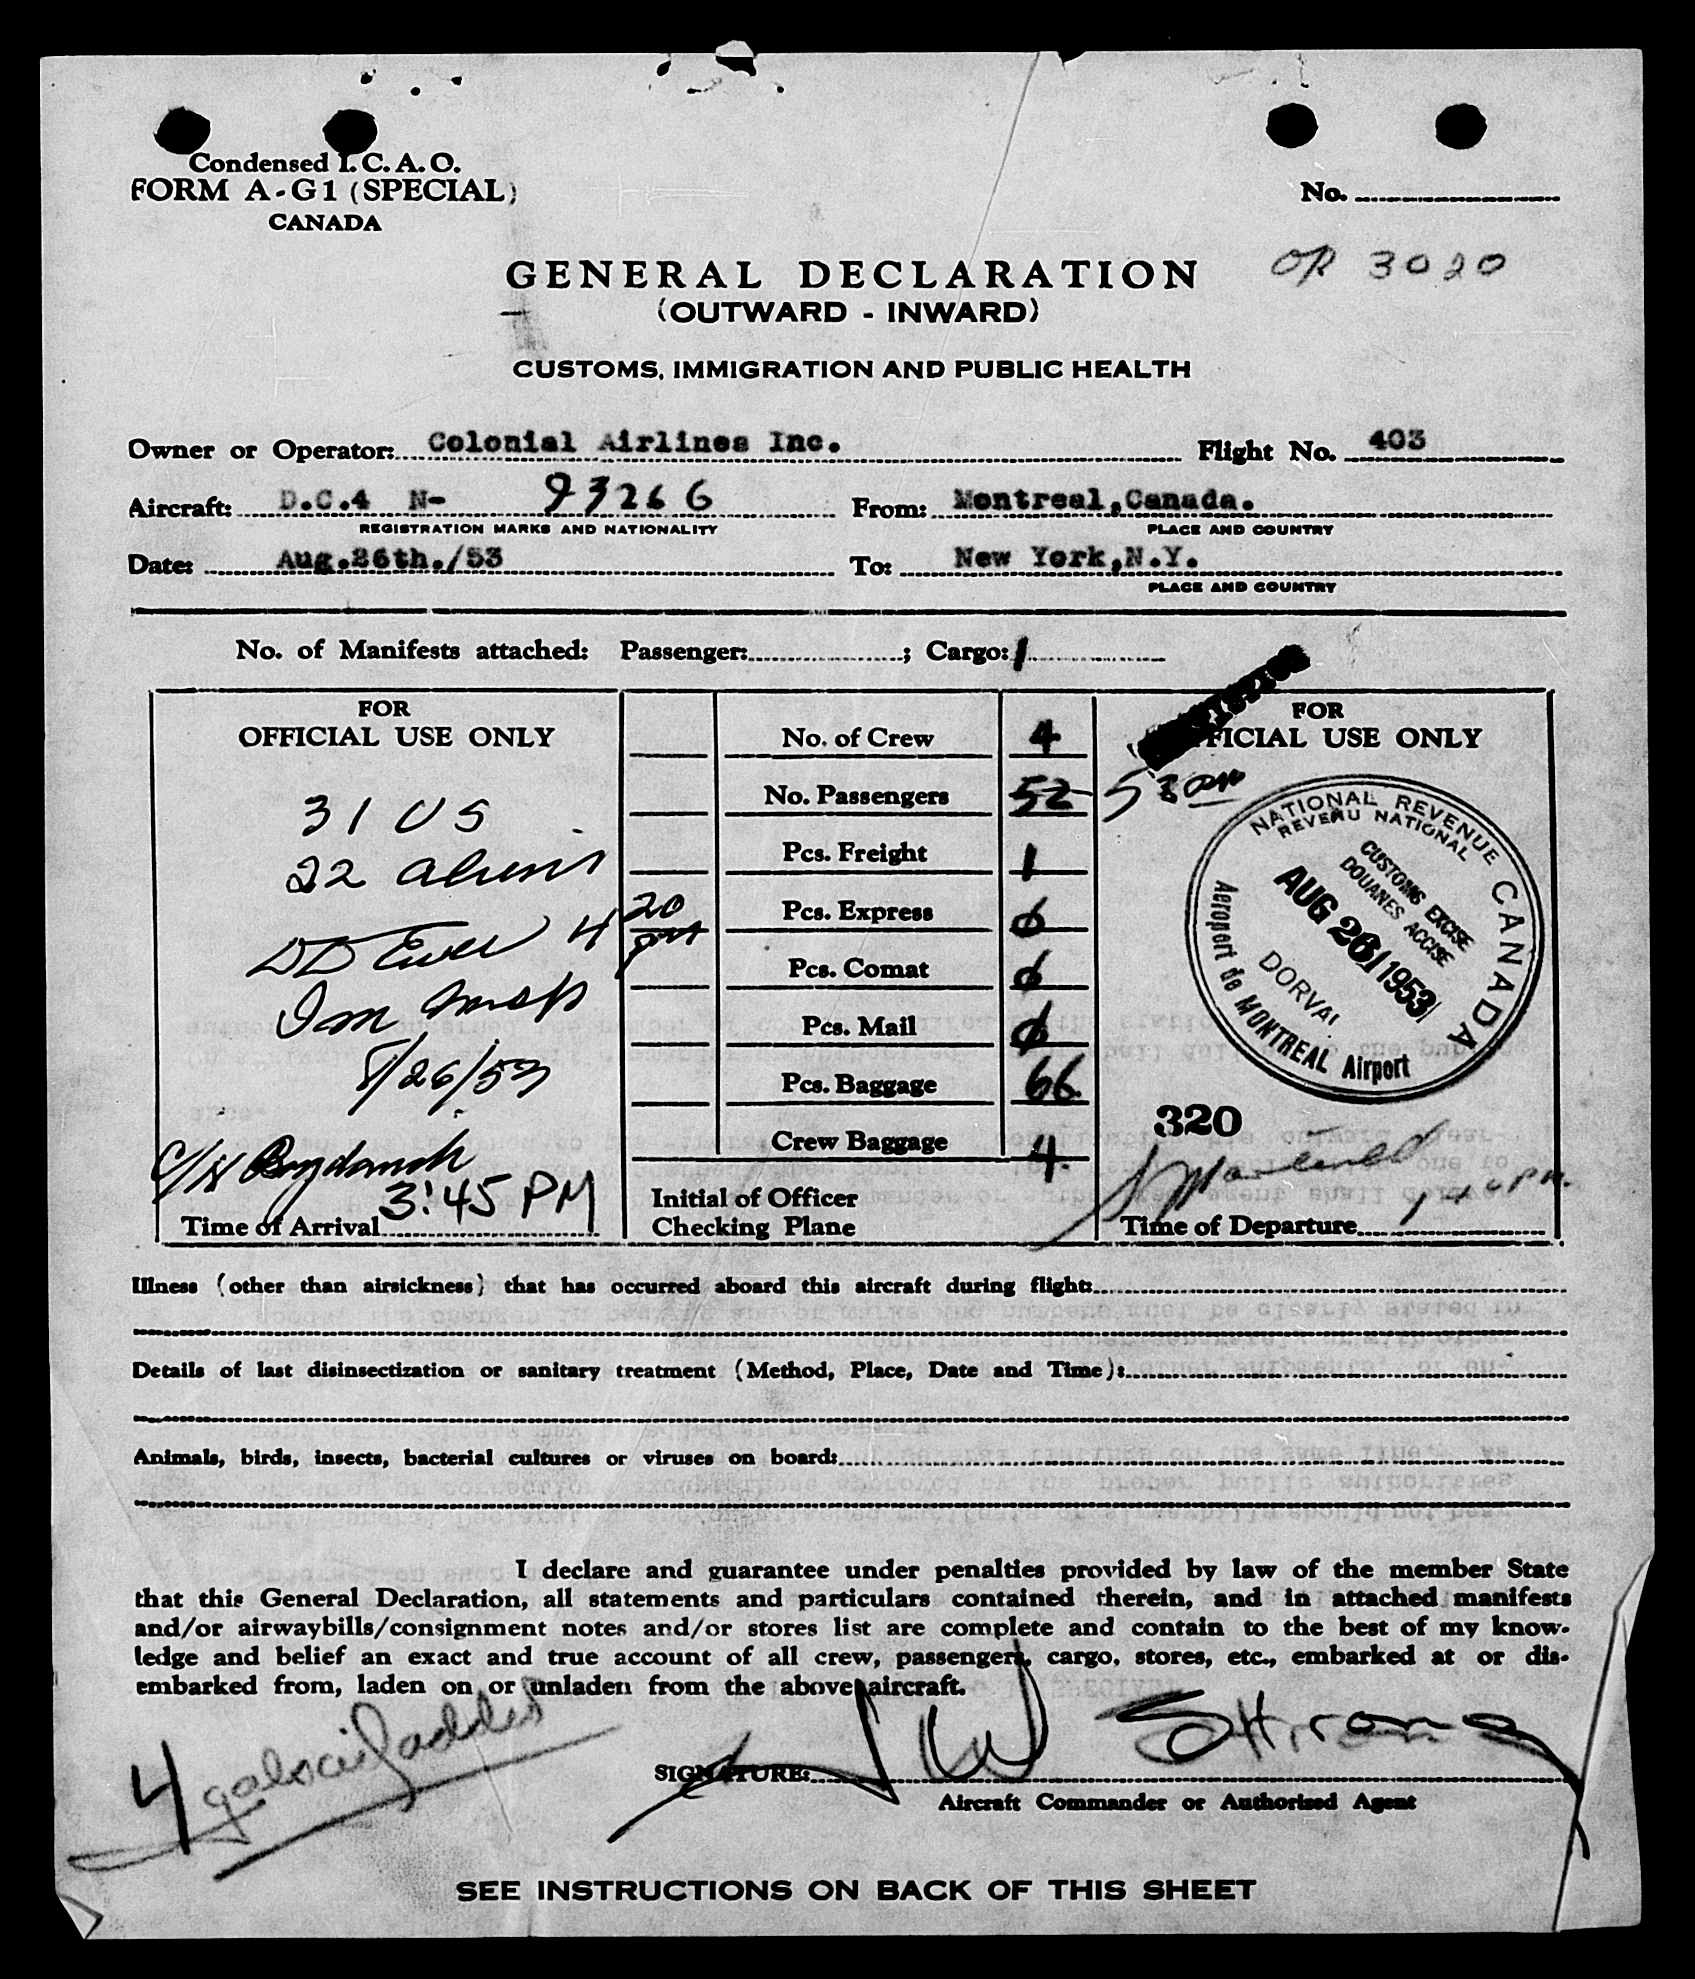 Condensed I.C.A.O.
FORM A-G1 (SPECIAL)
CANADA
No.
OR 3020
GENERAL DECLARATION
(OUTWARD - INWARD)
CUSTOMS, IMMIGRATION AND PUBLIC HEALTH
Owner or Operator: Colonial Airlines Inc. Flight No. 403
Aircraft: D.C.4 N- 93266 From: Montreal, Canada.
REGISTRATION MARKS AND NATIONALITY PLACE AND COUNTRY
Date: Aug.26th./53 To: New York, N.Y.
PLACE AND COUNTRY
No. of Manifests attached: Passenger: ; Cargo: 1
FOR
OFFICIAL USE ONLY
31 US
22 aliens
4 20 pm
Imm Insp
8/26/53
3:45 PM
Time of Arrival
No. of Crew 4
No. Passengers 52 53
Pcs. Freight 1
Pcs. Express 0
Pcs. Comat 0
Pcs. Mail 0
Pcs. Baggage 66
Crew Baggage 4.
Initial of Officer
Checking Plane
FOR
OFFICIAL USE ONLY
NATIONAL REVENUE CANADA
REVENU NATIONAL
CUSTOMS EXCISE
DOUANES ACCISE
AUG 26 1953
DORVAL
Aeroport de MONTREAL Airport
320
Time of Departure
Illness (other than airsickness) that has occurred aboard this aircraft during flight:
Details of last disinsectization or sanitary treatment (Method, Place, Date and Time):
Animals, birds, insects, bacterial cultures or viruses on board:
I declare and guarantee under penalties provided by law of the member State
that this General Declaration, all statements and particulars contained therein, and in attached manifests
and/or airwaybills/consignment notes and/or stores list are complete and contain to the best of my know-
ledge and belief an exact and true account of all crew, passengers, cargo, stores, etc., embarked at or dis-
embarked from, laden on or unladen from the above aircraft.
4 gals oil added
SIGNATURE: W Strong
Aircraft Commander or Authorized Agent
SEE INSTRUCTIONS ON BACK OF THIS SHEET